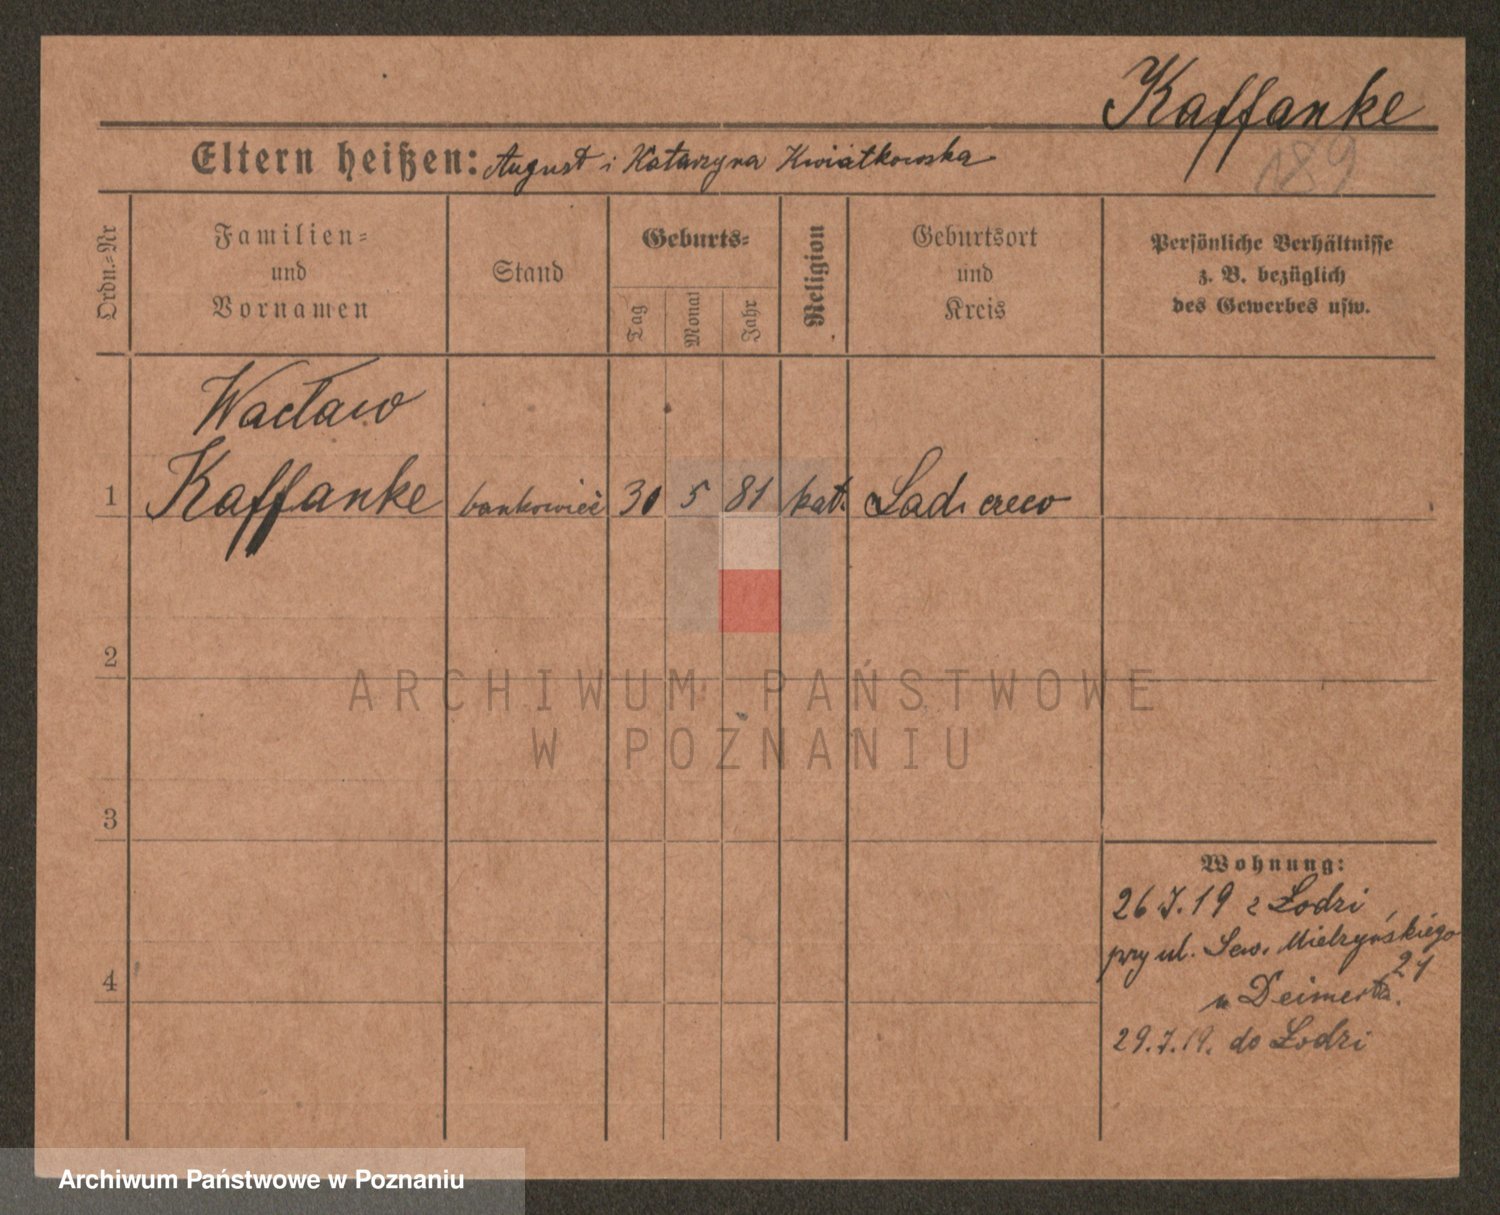 Kaffanke
Eltern heißen: August i Katarzyna Kwiatkowska
189
Ordn.=Nr
Familien=
und
Vornamen
Stand
Geburts=
Tag
Monat
Jahr
Religion
Geburtsort
und
Kreis
Persönliche Verhältnisse
z. B. bezüglich
des Gewerbes usw.
Wacław
1 Kaffanke bankowiec 30 5 81 kat.
2
3
4
Wohnung:
26.7.19 z Łodzi
przy ul. Sew. Mielżyńskiego
21
u Deimerta.
29.7.19. do Łodzi
ARCHIWUM PAŃSTWOWE
W POZNANIU
Archiwum Państwowe w Poznaniu